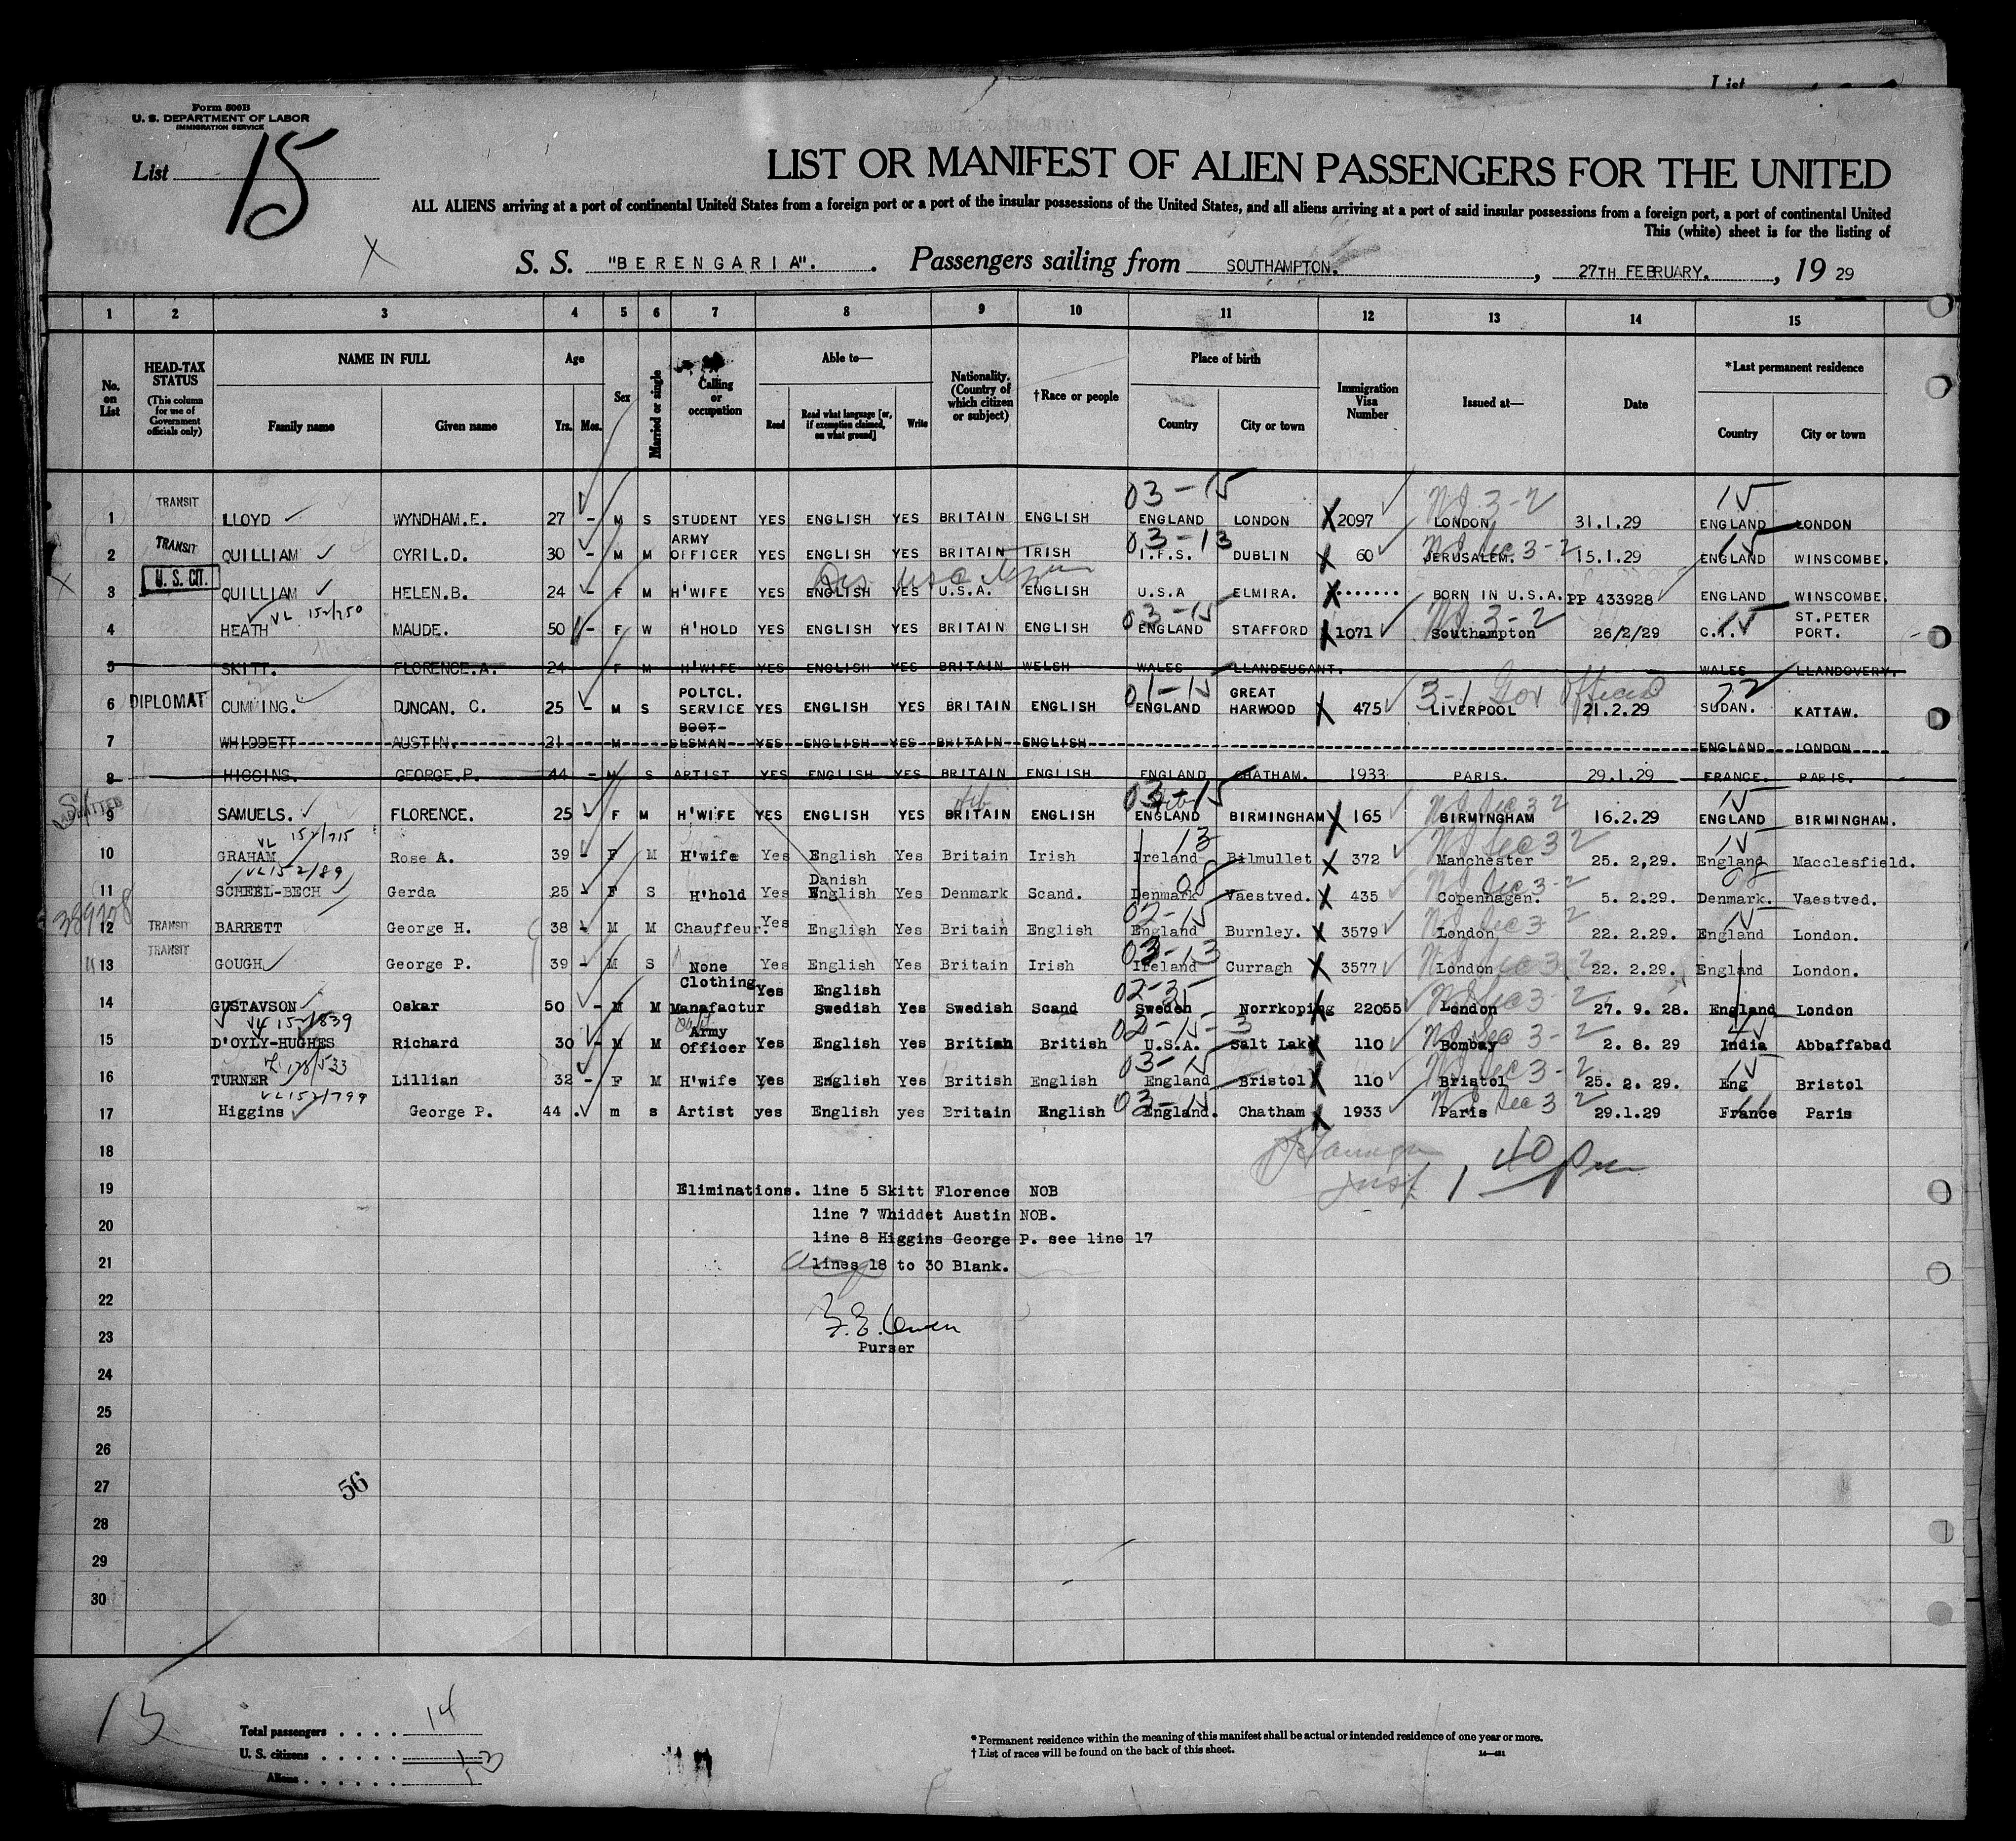 List
Form 500B
U. S. DEPARTMENT OF LABOR
IMMIGRATION SERVICE
List 15
LIST OR MANIFEST OF ALIEN PASSENGERS FOR THE UNITED
ALL ALIENS arriving at a port of continental United States from a foreign port or a port of the insular possessions of the United States, and all aliens arriving at a port of said insular possessions from a foreign port, a port of continental United
This (white) sheet is for the listing of
S. S. "BERENGARIA". Passengers sailing from SOUTHAMPTON. , 27TH FEBRUARY. , 19 29
1 2 3 4 5 6 7 8 9 10 11 12 13 14 15
No. on List
HEAD-TAX STATUS (This column for use of Government officials only)
NAME IN FULL Family name Given name
Age Yrs. Mos.
Sex
Married or single
Calling or occupation
Able to— Read Read what language [or, if exemption claimed, on what ground] Write
Nationality. (Country of which citizen or subject)
†Race or people
Place of birth Country City or town
Immigration Visa Number
Issued at—
Date
*Last permanent residence Country City or town
03-15 NI 3-2 15
1 TRANSIT LLOYD WYNDHAM.E. 27 - M S STUDENT YES ENGLISH YES BRITAIN ENGLISH ENGLAND LONDON X 2097 LONDON 31.1.29 ENGLAND LONDON
03-13 NI Sec 3-2 15
2 TRANSIT QUILLIAM CYRIL.D. 30 - M M ARMY OFFICER YES ENGLISH YES BRITAIN IRISH I.F.S. DUBLIN X 60 JERUSALEM. 15.1.29 ENGLAND WINSCOMBE.
3 U.S. CIT. QUILLIAM HELEN.B. 24 - F M H'WIFE YES ENGLISH YES U.S.A. ENGLISH U.S.A ELMIRA. X ....... BORN IN U.S.A. PP 433928 ENGLAND WINSCOMBE.
VL 152/750 03-15 NI 3-2 15
4 HEATH MAUDE. 50 - F W H'HOLD YES ENGLISH YES BRITAIN ENGLISH ENGLAND STAFFORD X 1071 Southampton 26/2/29 C.I. ST.PETER PORT.
5 SKITT. FLORENCE.A. 24 F M H'WIFE YES ENGLISH YES BRITAIN WELSH WALES LLANDEUSANT. WALES LLANDOVERY.
01-15 3-1 Gov Official 72
6 DIPLOMAT CUMMING. DUNCAN. C. 25 - M S POLTCL. SERVICE YES ENGLISH YES BRITAIN ENGLISH ENGLAND GREAT HARWOOD X 475 LIVERPOOL 21.2.29 SUDAN. KATTAW.
7 WHIDDETT AUSTIN. 21 M BOOT- SLSMAN YES ENGLISH YES BRITAIN ENGLISH ENGLAND LONDON
8 HIGGINS. GEORGE.P. 44 - M S ARTIST YES ENGLISH YES BRITAIN ENGLISH ENGLAND CHATHAM. 1933 PARIS. 29.1.29 FRANCE. PARIS.
ADMITTED 03-15 NI Sec 3 2 15
9 SAMUELS. FLORENCE. 25 - F M H'WIFE YES ENGLISH YES BRITAIN ENGLISH ENGLAND BIRMINGHAM X 165 BIRMINGHAM 16.2.29 ENGLAND BIRMINGHAM.
VL 152/715 13 NI Sec 3 2 15
10 GRAHAM Rose A. 39 - F M H'wife Yes English Yes Britain Irish Ireland Bilmullet X 372 Manchester 25. 2,29. England Macclesfield.
VL 152/89 08 NI Sec 3-2 08
11 SCHEEL-BECH Gerda 25 - F S H'hold Yes Danish English Yes Denmark Scand. Denmark Vaestved. X 435 Copenhagen. 5. 2.29. Denmark. Vaestved.
02-15 NI Sec 3 2 15
12 TRANSIT BARRETT George H. 38 - M M Chauffeur. Yes English Yes Britain English England Burnley. X 3579 London 22. 2.29. England London.
03-13 NI Sec 3 2
13 TRANSIT GOUGH George P. 39 - M S None Yes English Yes Britain Irish Ireland Curragh X 3577 London 22. 2.29. England London.
02-35 NI Sec 3-2
14 GUSTAVSON Oskar 50 - M M Clothing Manafactur Yes English Swedish Yes Swedish Scand Sweden Norrkoping X 22055 London 27. 9. 28. England London
VL 152/839 02-15-3 NI Sec 3-2
15 D'OYLY-HUGHES Richard 30 - M M Army Officer Yes English Yes British British U.S.A. Salt Lake X 110 Bombay 2. 8. 29 India Abbaffabad
03-15 NI Sec 3-2 15
16 TURNER Lillian 32 - F M H'wife Yes English Yes British English England Bristol X 110 Bristol 25. 2. 29. Eng Bristol
VL 152/799 03-15 NI Sec 3 2
17 Higgins George P. 44 . m s Artist yes English yes Britain English England. Chatham X 1933 Paris 29.1.29 France Paris
18
1 40 pm
19 Eliminations. line 5 Skitt Florence NOB
line 7 Whiddet Austin NOB.
20
line 8 Higgins George P. see line 17
21 lines 18 to 30 Blank.
22
23
Purser
24
25
26
27 56
28
29
30
Total passengers . . . . 14
U. S. citizens . . . . .
Aliens . . . . . . 13
* Permanent residence within the meaning of this manifest shall be actual or intended residence of one year or more.
† List of races will be found on the back of this sheet. 14—481